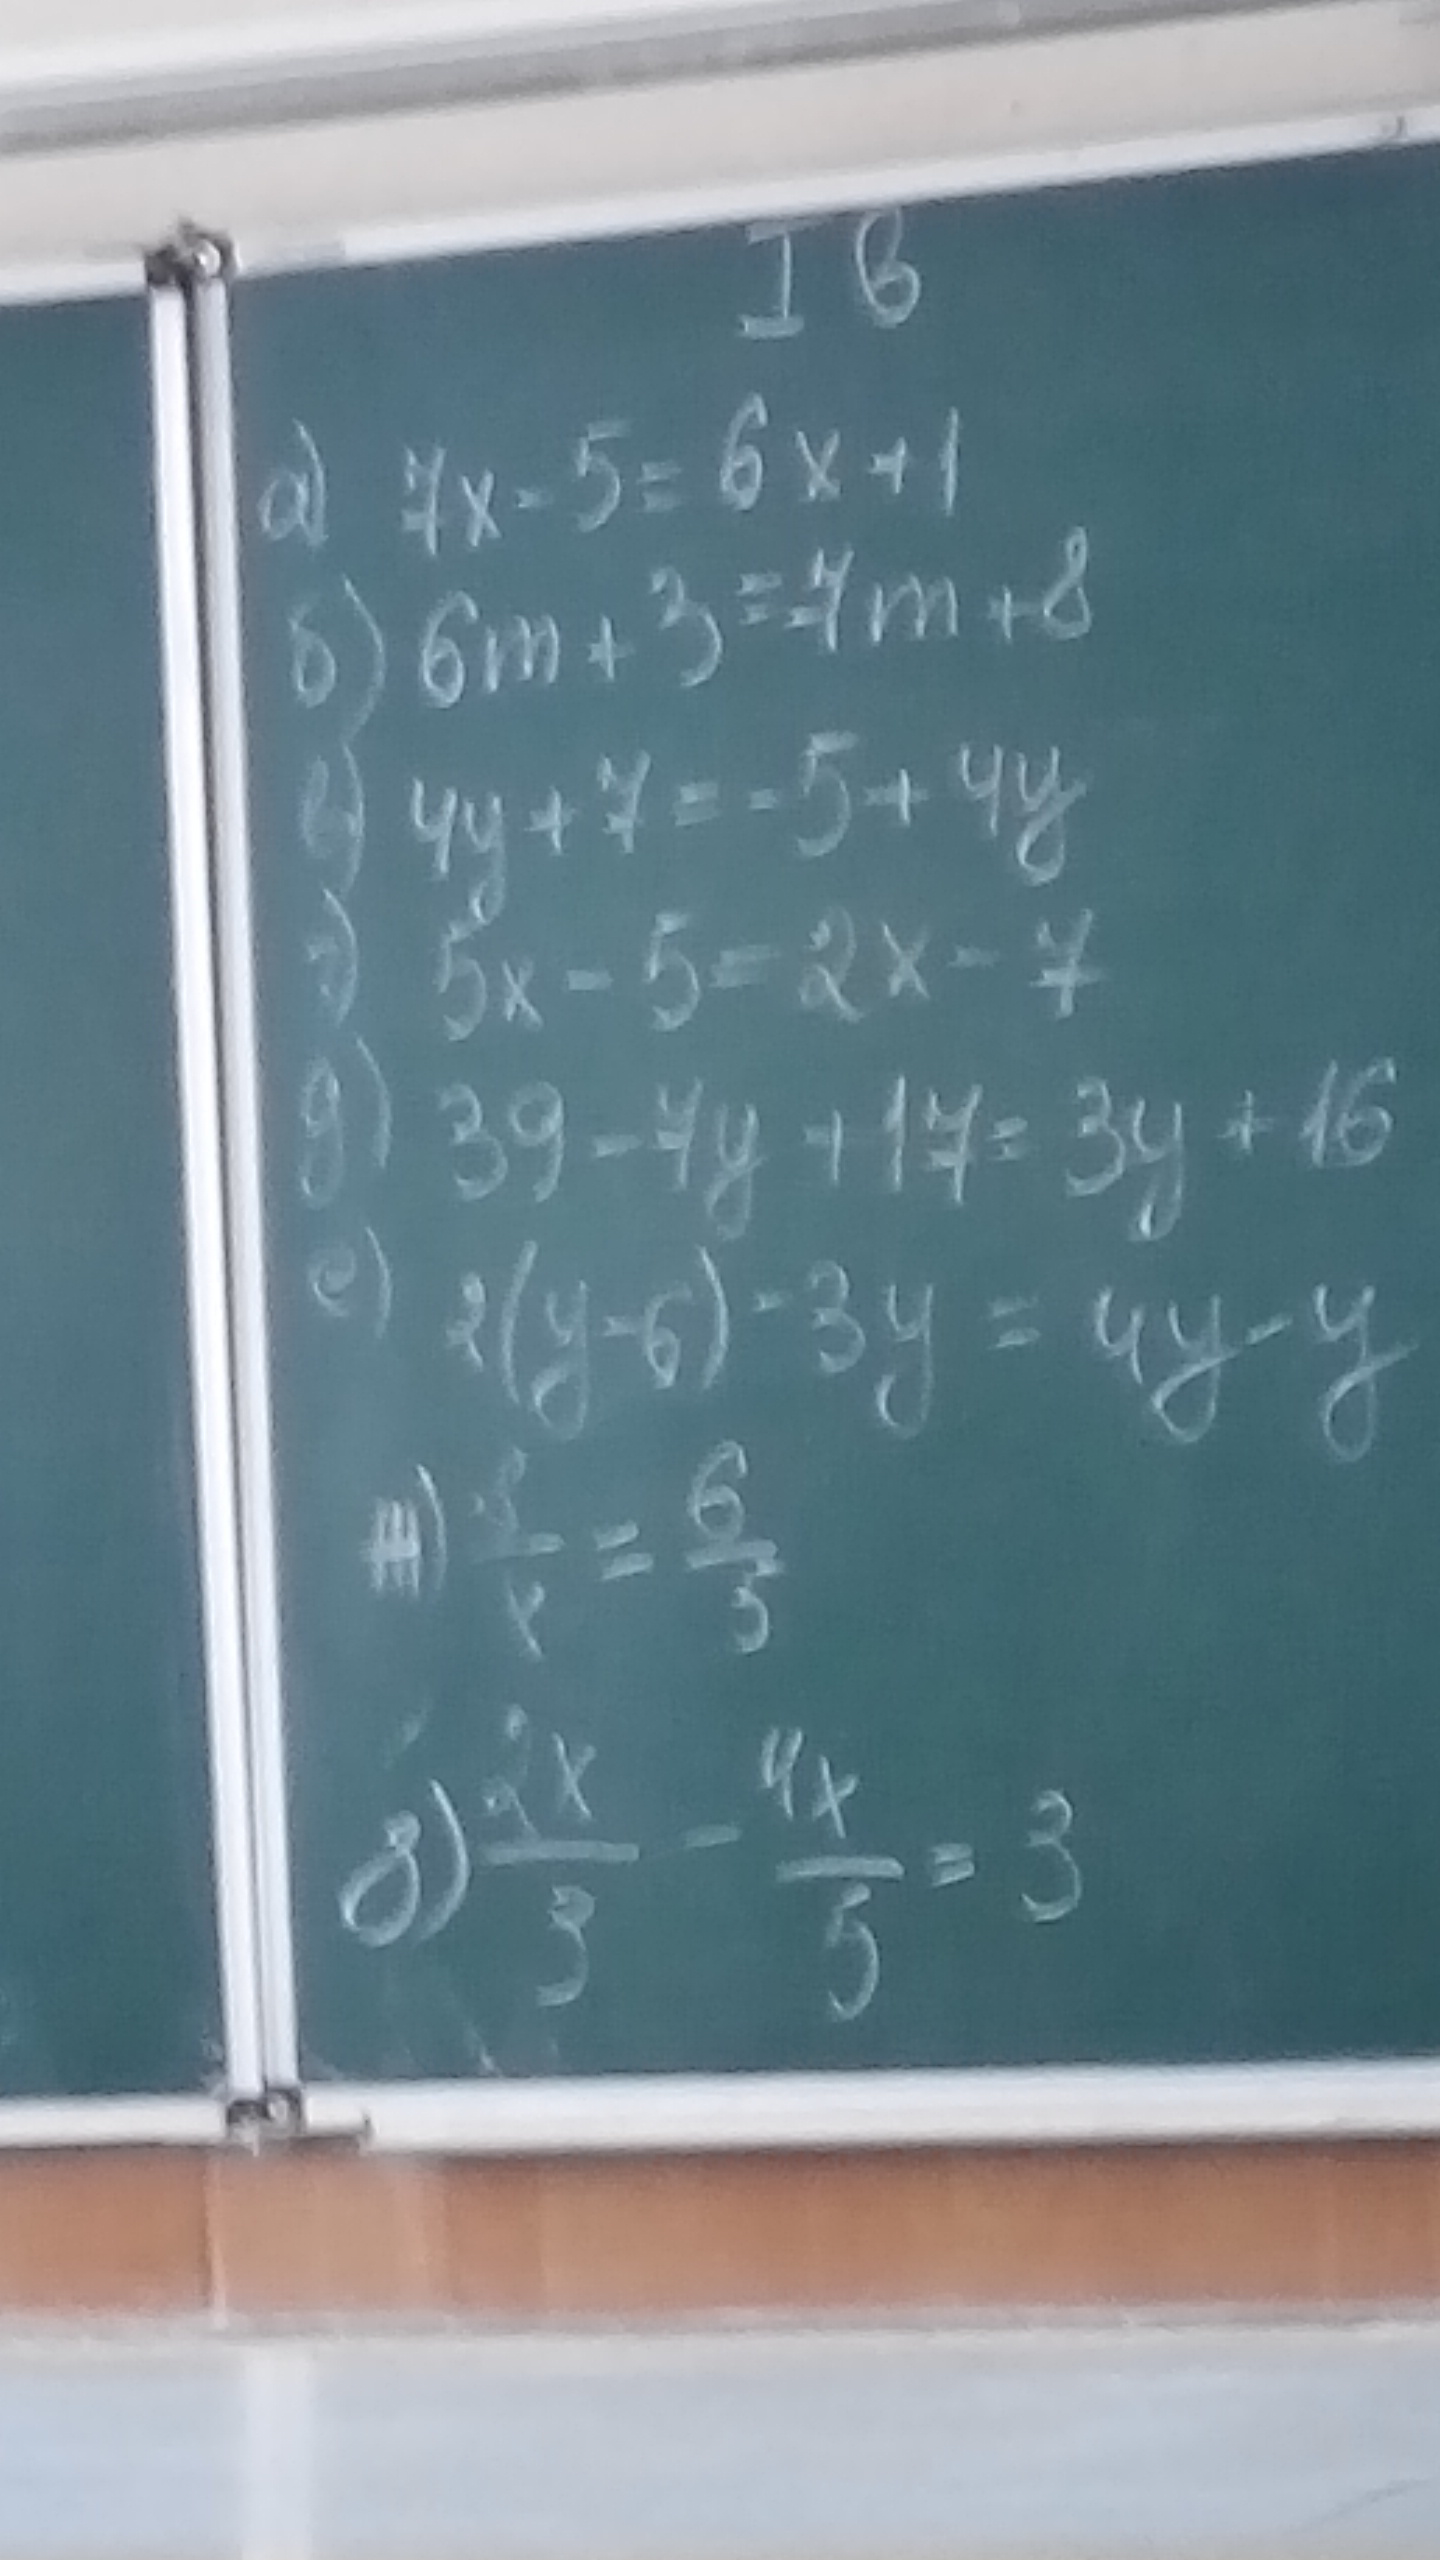 I в
а) 7x - 5 = 6x + 1
б) 6m + 3 = 7m + 8
в) 4y + 7 = -5 + 4y
г) 5x - 5 = 2x - 7
д) 39 - 7y + 17 = 3y + 16
е) 2(y-6) - 3y = 4y - y
ж) /x = 6/5
з) 2x/3 - 4x/5 = 3